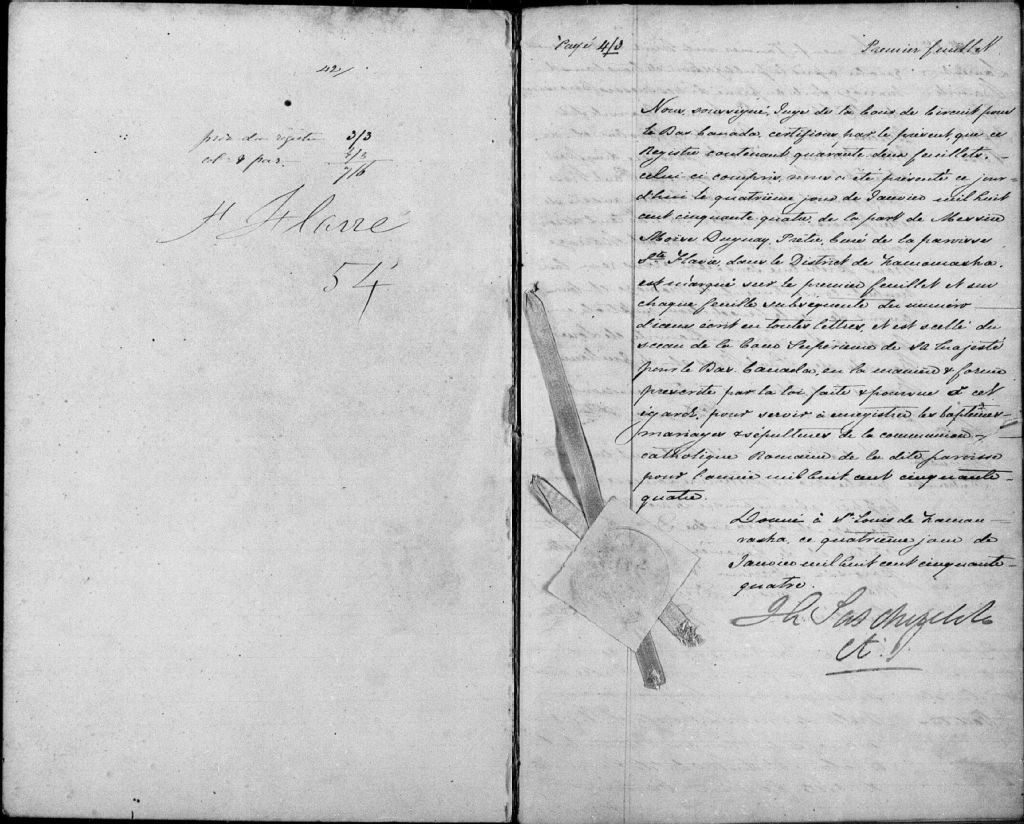 42
prix du registre 3/3
cot: & par. 4/3
7/6
St Flavie
54
Payé 4/3
Premier feuillet
Nous, soussigné, Juge de la Cour de Circuit pour
le Bas Canada, certifions par le présent, que ce
Registre contenant quarante deux feuillets,
celui ci compris, nous a été présenté ce jour-
d'hui le quatrième jour de Janvier mil huit
cent cinquante quatre, de la part de Messire
Moïse Duguay, Prêtre, Curé de la paroisse
Ste Flavie, dans le District de Kamouraska,
est marqué sur le premier feuillet et sur
chaque feuille subséquente du numéro
d'iceux écrit en toutes lettres, et est scellé du
sceau de la Cour Supérieure de Sa Majesté
pour le Bas Canada, en la manière & forme
prescrite par la loi faite & pourvue à cet
égard, pour servir à enregistrer les baptêmes
mariages & sépultures de la communion
catholique Romaine de la dite paroisse
pour l'année mil huit cent cinquante-
quatre.
Donné à St Louis de Kamou-
raska, ce quatrième jour de
Janvier mil huit cent cinquante-
quatre.